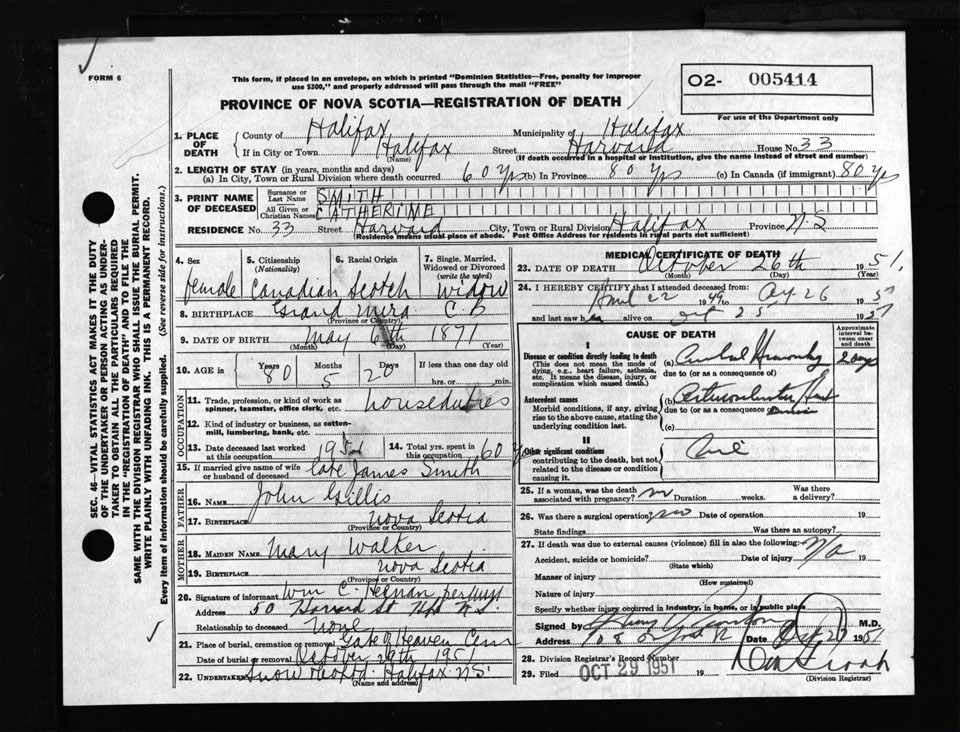 FORM 6
This form, if placed in an envelope, on which is printed "Dominion Statistics—Free, penalty for improper
use $300," and properly addressed will pass through the mail "FREE"
O2- 005414
For use of the Department only
PROVINCE OF NOVA SCOTIA—REGISTRATION OF DEATH
1. PLACE OF DEATH
County of Halifax Municipality of Halifax
If in City or Town Halifax (Name) Street Harvard House No. 33
(If death occurred in a hospital or institution, give the name instead of street and number)
2. LENGTH OF STAY (in years, months and days)
(a) In City, Town or Rural Division where death occurred 60 Yrs (b) In Province 80 Yrs (c) In Canada (if immigrant) 80 Yrs
3. PRINT NAME OF DECEASED
Surname or Last Name SMITH
All Given or Christian Names CATHERINE
RESIDENCE No. 33 Street Harvard City, Town or Rural Division Halifax Province N.S
(Residence means usual place of abode. Post Office Address for residents in rural parts not sufficient)
SEC. 46—VITAL STATISTICS ACT MAKES IT THE DUTY
OF THE UNDERTAKER OR PERSON ACTING AS UNDER-
TAKER TO OBTAIN ALL THE PARTICULARS REQUIRED
IN THE "REGISTRATION OF DEATH" AND TO FILE THE
SAME WITH THE DIVISION REGISTRAR WHO SHALL ISSUE THE BURIAL PERMIT.
WRITE PLAINLY WITH UNFADING INK. THIS IS A PERMANENT RECORD.
Every item of information should be carefully supplied. (See reverse side for instructions.)
4. Sex female
5. Citizenship (Nationality) Canadian
6. Racial Origin Scotch
7. Single, Married, Widowed or Divorced (write the word) Widow
8. BIRTHPLACE Grand Mira C.B
(Province or Country)
9. DATE OF BIRTH May 6th 1871
(Month) (Day) (Year)
10. AGE in Years 80 Months 5 Days 20 If less than one day hrs. or min.
OCCUPATION
11. Trade, profession, or kind of work as spinner, teamster, office clerk, etc. houseduties
12. Kind of industry or business, as cotton-mill, lumbering, bank, etc.
13. Date deceased last worked at this occupation 1951
14. Total yrs. spent in this occupation 60 Yrs
15. If married give name of wife or husband of deceased Late James Smith
FATHER
16. Name John Gillis
17. Birthplace Nova Scotia
(Province or Country)
MOTHER
18. MAIDEN NAME Mary Walker
19. BIRTHPLACE Nova Scotia
(Province or Country)
20. Signature of informant Wm C. Heenan per
Address 50 Harvard St Hfx N.S.
Relationship to deceased none
21. Place of burial, cremation or removal Gate of Heaven Cem
Date of burial or removal October 29th 1951
22. UNDERTAKER Snow Halifax NS
(Name and address)
MEDICAL CERTIFICATE OF DEATH
23. DATE OF DEATH October 26th 1951
(Month) (Day) (Year)
24. I HEREBY CERTIFY that I attended deceased from
April 22 1949 to Oct 26 1951
and last saw h alive on Oct 25 1951
CAUSE OF DEATH
Approximate interval between onset and death
I
Disease or condition directly leading to death
(This does not mean the mode of dying, e.g., heart failure, asthenia, etc. It means the disease, injury, or complication which caused death.)
(a) Cerebral Hemorrhage 2 days
due to (or as a consequence of)
Antecedent causes
Morbid conditions, if any, giving rise to the above cause, stating the underlying condition last.
(b) Heart
due to (or as a consequence of)
(c)
II
Other significant conditions
contributing to the death, but not related to the disease or condition causing it.
25. If a woman, was the death associated with pregnancy? no Duration weeks. Was there a delivery?
26. Was there a surgical operation? no Date of operation 19
State findings Was there an autopsy?
27. If death was due to external causes (violence) fill in also the following: N/a
Accident, suicide or homicide? (State which) Date of injury 19
Manner of injury
(How sustained)
Nature of injury
Specify whether injury occurred in industry, in home, or in public place
Signed by M.D.
Address Date Oct 27 1951
28. Division Registrar's Record Number
29. Filed OCT 29 1951 19
(Division Registrar)